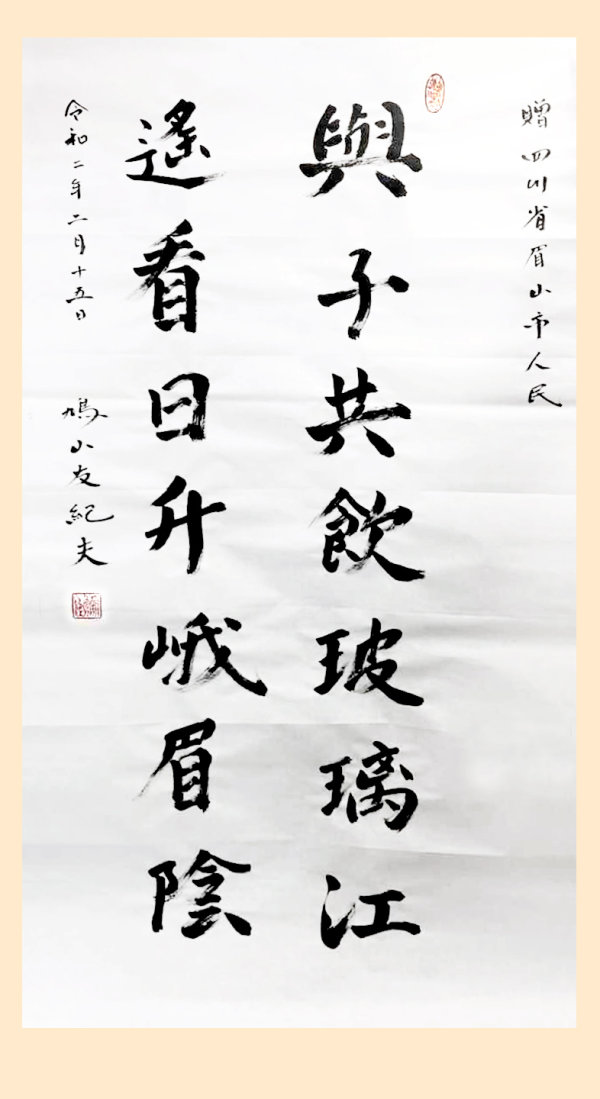 贈四川省眉山市人民
與子共飲玻璃江
遙看日升峨眉陰
令和二年二月十五日
鳩山友紀夫